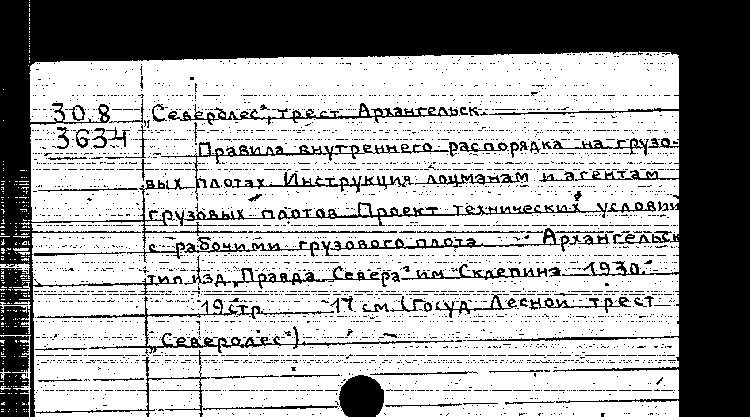 30.8
3634
„Северолес“, трест. Архангельск.
Правила внутреннего распорядка на грузо-
вых плотах. Инструкция лоцманам и агентам
грузовых плотов. Проект технических условий
с рабочими грузового плота. - Архангельск
тип. изд. „Правда Севера“ им. Склепина 1930.
19 стр. 17 см. (Госуд. Лесной трест
„Северолес“).